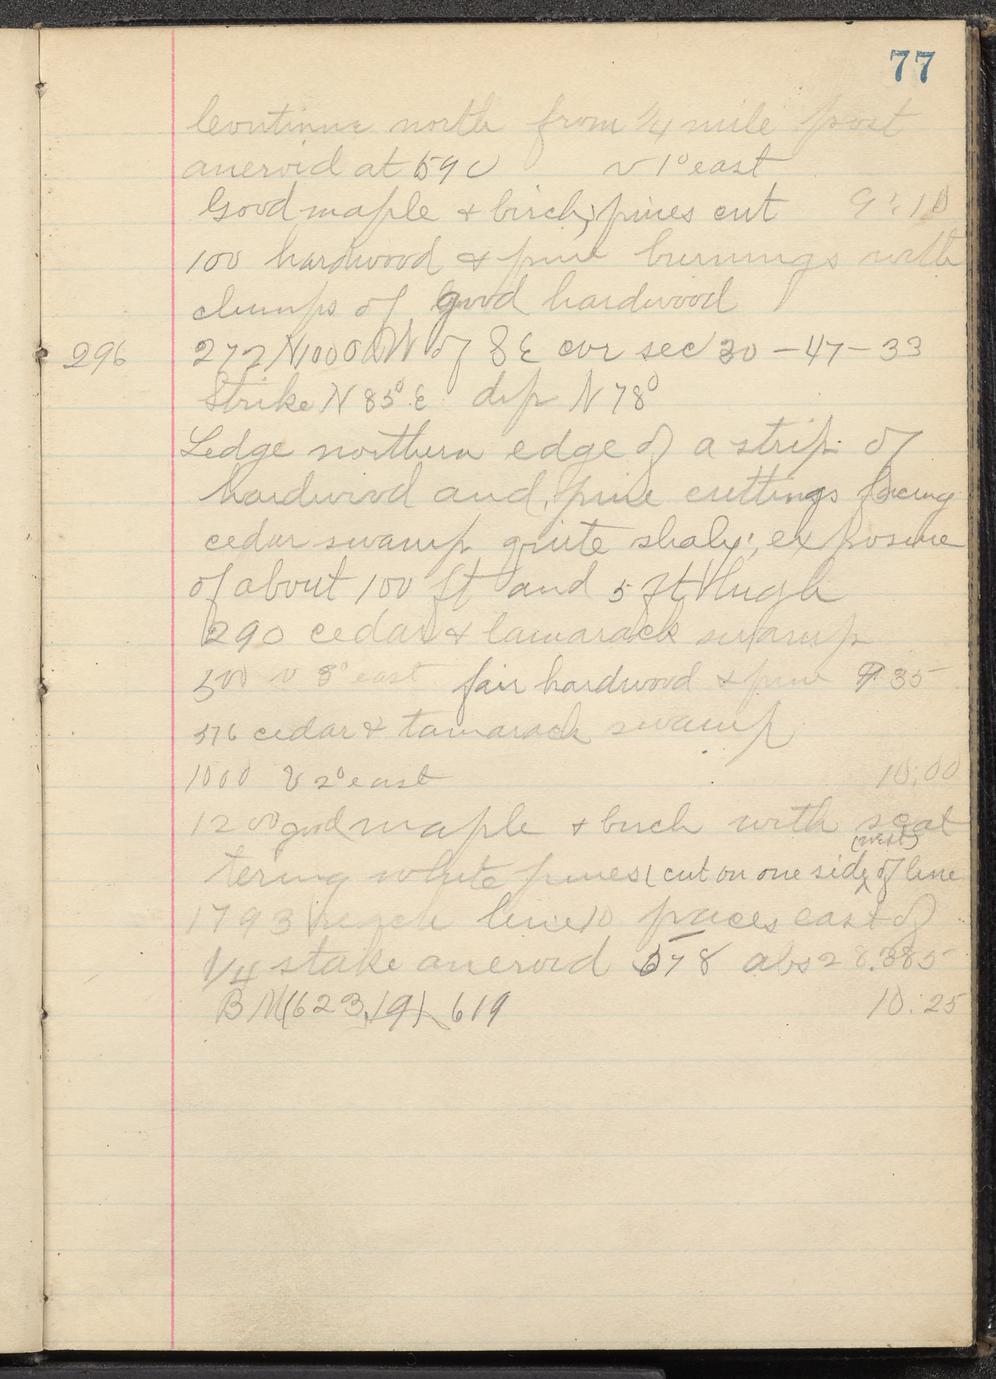 77
Continue north from 1/4 mile post
aneroid at 590 v 1° east
Good maple & birch; pines cut 9:10
100 hardwood & pine burnings with
clumps of good hardwood
296 272 N 1000 W of SE cor sec 30 - 47 - 33
Strike N 85° E dip N 78°
Ledge northern edge of a strip of
hardwood and pine cuttings facing
cedar swamp quite shaly; exposure
of about 100 ft and 5 ft high
290 cedar & tamarack swamp
500 v 3° east fair hardwood & pine 9 35
576 cedar & tamarack swamp
1000 v 2° east 10:00
1200 good maple & birch with scat
tering white pines (cut on one side (west) of line
1793 reach line 10 paces east of
1/4 stake aneroid 578 abs 28.385
BM (623,19) 619 10:25